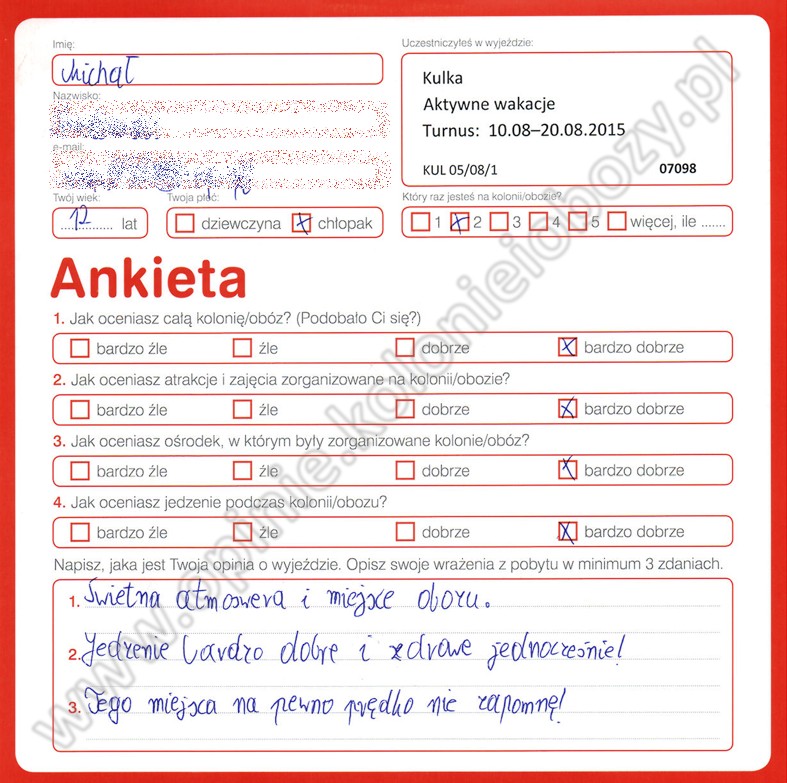 Imię:
Michał
Nazwisko:
e-mail:
Twój wiek:
12 lat
Twoja płeć:
dziewczyna chłopak
Uczestniczyłeś w wyjeździe:
Kulka
Aktywne wakacje
Turnus: 10.08–20.08.2015
KUL 05/08/1 07098
Który raz jesteś na kolonii/obozie?
1 2 3 4 5 więcej, ile .......
Ankieta
1. Jak oceniasz całą kolonię/obóz? (Podobało Ci się?)
bardzo źle źle dobrze bardzo dobrze
2. Jak oceniasz atrakcje i zajęcia zorganizowane na kolonii/obozie?
bardzo źle źle dobrze bardzo dobrze
3. Jak oceniasz ośrodek, w którym były zorganizowane kolonie/obóz?
bardzo źle źle dobrze bardzo dobrze
4. Jak oceniasz jedzenie podczas kolonii/obozu?
bardzo źle źle dobrze bardzo dobrze
Napisz, jaka jest Twoja opinia o wyjeździe. Opisz swoje wrażenia z pobytu w minimum 3 zdaniach.
1. Świetna atmoswera i miejsce obozu.
2. Jedzenie bardzo dobre i zdrowe jednocześnie!
3. Tego miejsca na pewno prędko nie zapomnę!
www.opinie.kolonieiobozy.pl